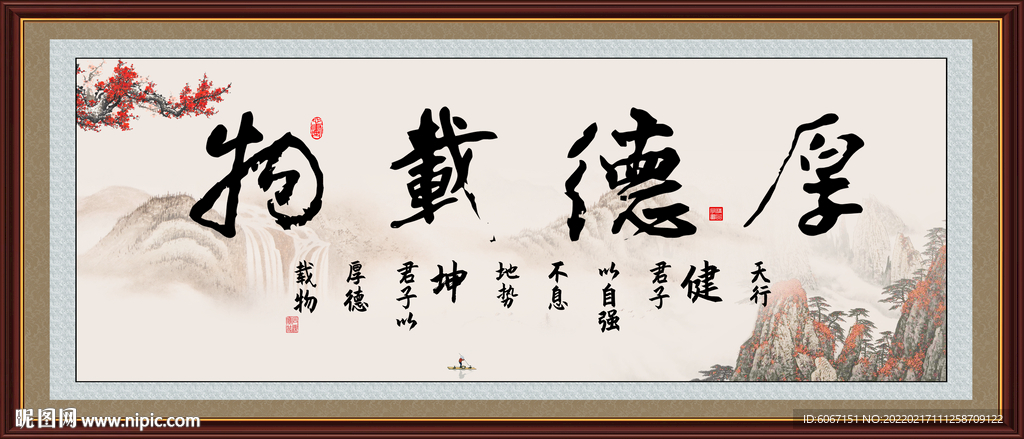 厚德載物
天行
健
君子
以自强
不息
地势
坤
君子以
厚德
载物
昵图网 www.nipic.com
ID:6067151 NO:20220217111258709122